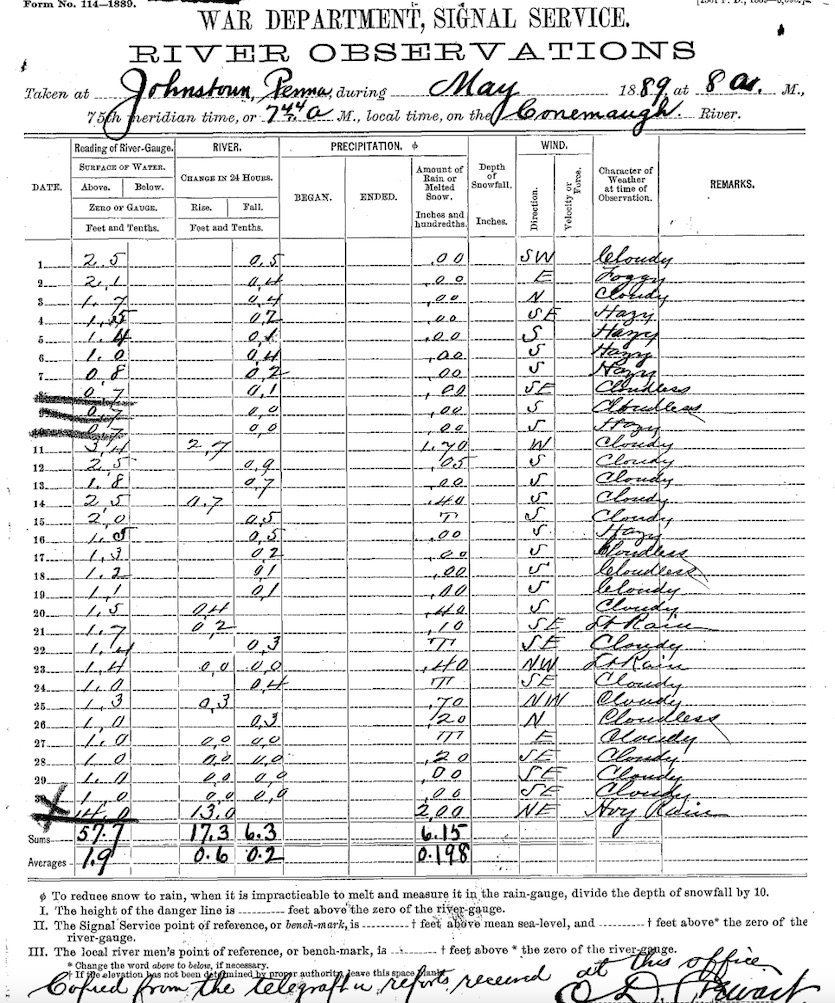 Form No. 114—1889.
WAR DEPARTMENT, SIGNAL SERVICE.
RIVER OBSERVATIONS
Taken at Johnstown, Penna, during May 1889 at 8 a. M.,
75th meridian time, or 7 44 a M., local time, on the Conemaugh. River.
DATE. Reading of River-Gauge. RIVER. PRECIPITATION. ϕ Depth of Snowfall. WIND. Character of Weather at time of Observation. REMARKS.
SURFACE OF WATER. CHANGE IN 24 HOURS. BEGAN. ENDED. Amount of Rain or Melted Snow. Direction. Velocity or Force.
Above. Below. Rise. Fall.
ZERO OF GAUGE. Inches and hundredths. Inches.
Feet and Tenths. Feet and Tenths.
1 2.5 0.5 .00 SW Cloudy
2 2.1 0.4 .00 E Foggy
3 1.7 0.4 .00 N Cloudy
4 1.5 0.2 .00 SE Hazy
5 1.4 0.1 .00 S Hazy
6 1.0 0.4 .00 S Hazy
7 0.8 0.2 .00 S Hazy
8 0.7 0.1 .00 SE Cloudless
9 0.7 0.0 .00 S Cloudless
10 0.7 0.0 .00 S Hazy
11 3.4 2.7 1.70 W Cloudy
12 2.5 0.9 .05 S Cloudy
13 1.8 0.7 .00 S Cloudy
14 2.5 0.7 .40 S Cloudy
15 2.0 0.5 T S Cloudy
16 1.5 0.5 .00 S Hazy
17 1.3 0.2 .00 S Cloudless
18 1.2 0.1 .00 S Cloudless
19 1.1 0.1 .00 S Cloudy
20 1.5 0.4 .40 S Cloudy
21 1.7 0.2 .10 SE Lt Rain
22 1.4 0.3 T SE Cloudy
23 1.4 0.0 0.0 .40 NW Lt Rain
24 1.0 0.4 T SE Cloudy
25 1.3 0.3 .70 NW Cloudy
26 1.0 0.3 .20 N Cloudless
27 1.0 0.0 0.0 T E Cloudy
28 1.0 0.0 0.0 .20 SE Cloudy
29 1.0 0.0 0.0 .00 SE Cloudy
1.0 0.0 0.0 .00 SE Cloudy
14.0 13.0 2.00 NE Hvy Rain
Sums 57.7 17.3 6.3 6.15
Averages 1.9 0.6 0.2 0.198
ϕ To reduce snow to rain, when it is impracticable to melt and measure it in the rain-gauge, divide the depth of snowfall by 10.
I. The height of the danger line is feet above the zero of the river-gauge.
II. The Signal Service point of reference, or bench-mark, is † feet above mean sea-level, and † feet above* the zero of the
river-gauge.
III. The local river men's point of reference, or bench-mark, is † feet above * the zero of the river-gauge.
* Change the word above to below, if necessary.
† If the elevation has not been determined by proper authority, leave this space blank.
Copied from the telegraphic reports received at this office